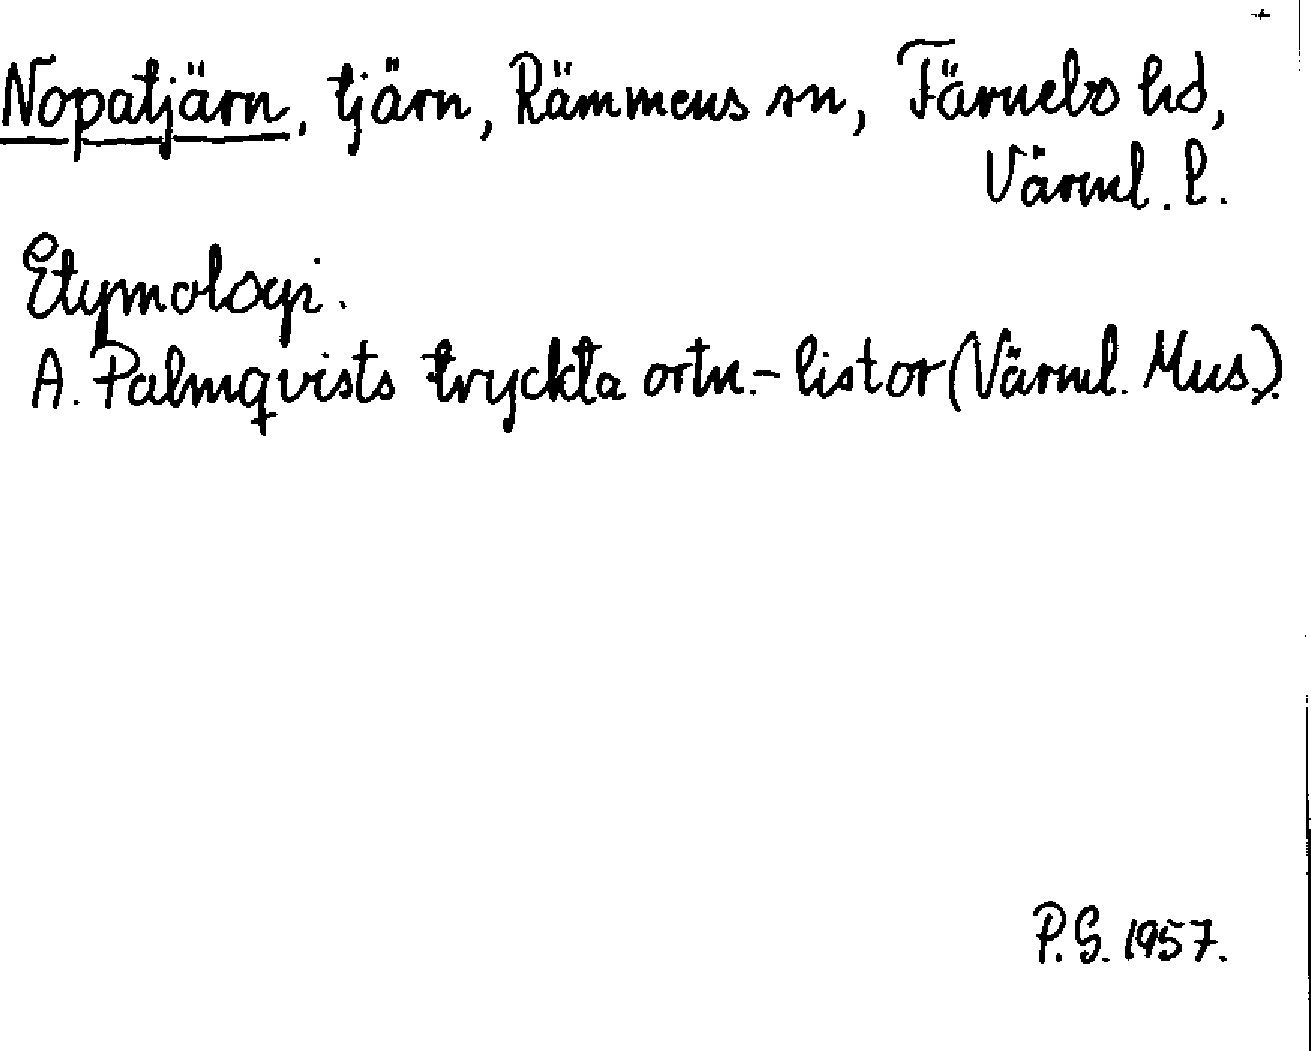 Nopatjärn, tjärn, Rämmens sn, Färnebo hd,
Värml. l.
Etymologi.
A. Palmqvists tryckta ortn.-listor (Värml. Mus.).
P.G. 1957.